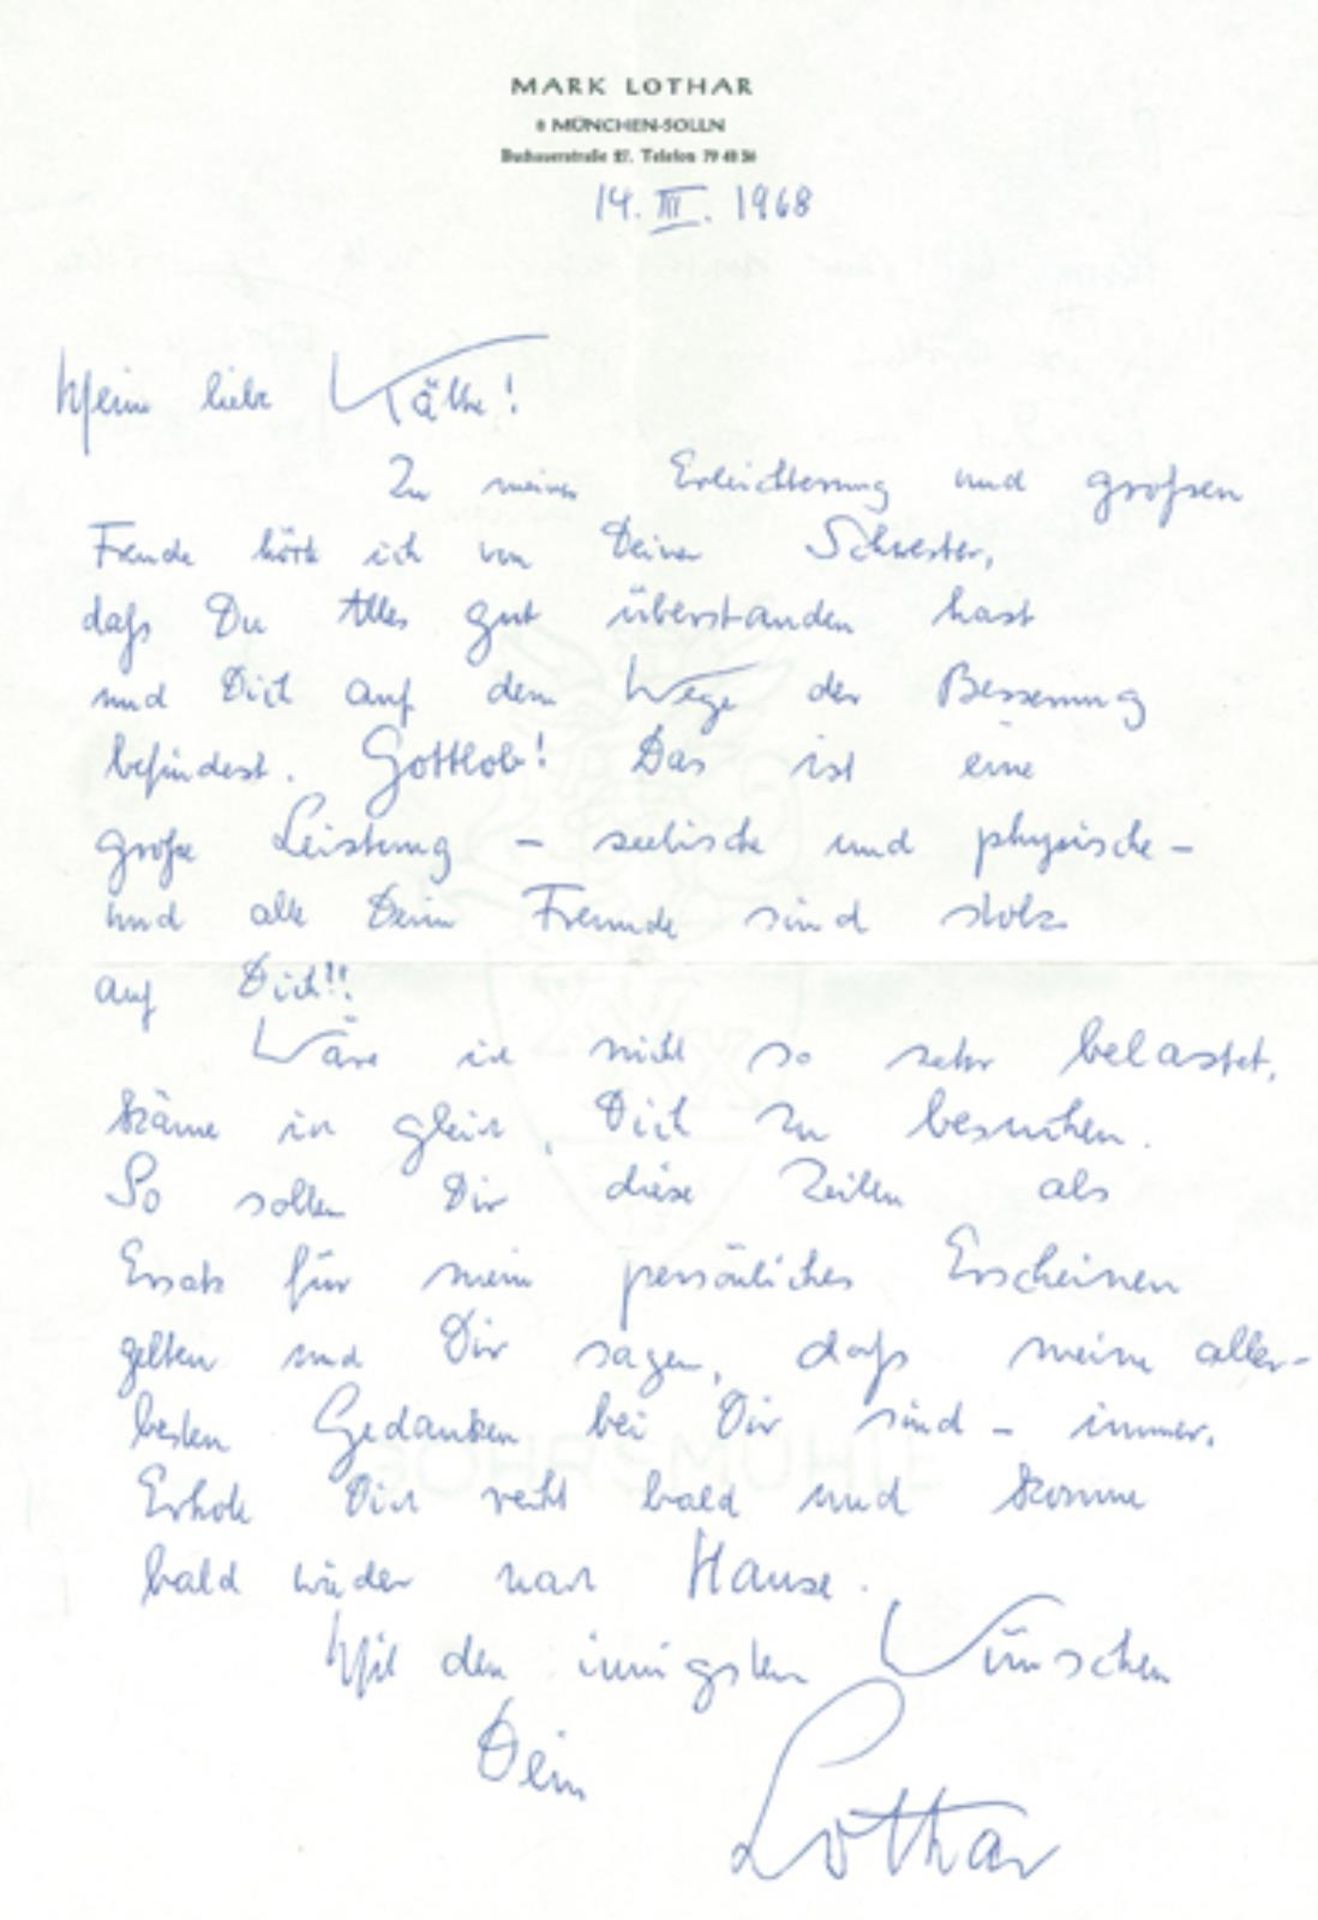 MARK LOTHAR
8 MÜNCHEN-SOLLN
Telefon 79 48 56
14. III. 1968
Meine liebe Käthe!
Zu meiner Erleichterung und großen
Freude hörte ich von Deiner Schwester,
daß Du Alles gut überstanden hast
und Dich auf dem Wege der Besserung
befindest. Gottlob! Das ist eine
große Leistung – seelische und physische –
und alle Deine Freunde sind stolz
auf Dich!!
Wäre ich nicht so sehr belastet,
käme ich gleich, Dich zu besuchen.
So sollen Dir diese Zeilen als
Ersatz für mein persönliches Erscheinen
gelten und Dir sagen, daß meine aller-
besten Gedanken bei Dir sind – immer.
Erhole Dich recht bald und komme
bald wieder nach Hause.
Mit den innigsten Wünschen
Dein
Lothar